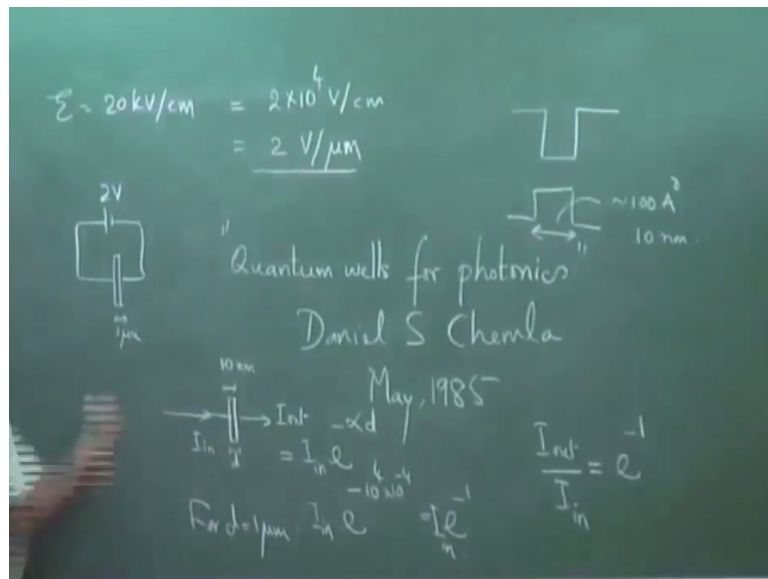 ξ = 20 kV/cm = 2×10⁴ V/cm
= 2 V/μm
2V
1 μm
~100 A°
10 nm.
"Quantum wells for photonics"
Daniel S Chemla
May, 1985
10 nm
I_in
d
I_out
= I_in e^{-αd}
For d=1μm. I_in e^{-10⁴×10⁻⁴} = I_in e^{-1}
I_out / I_in = e^{-1}